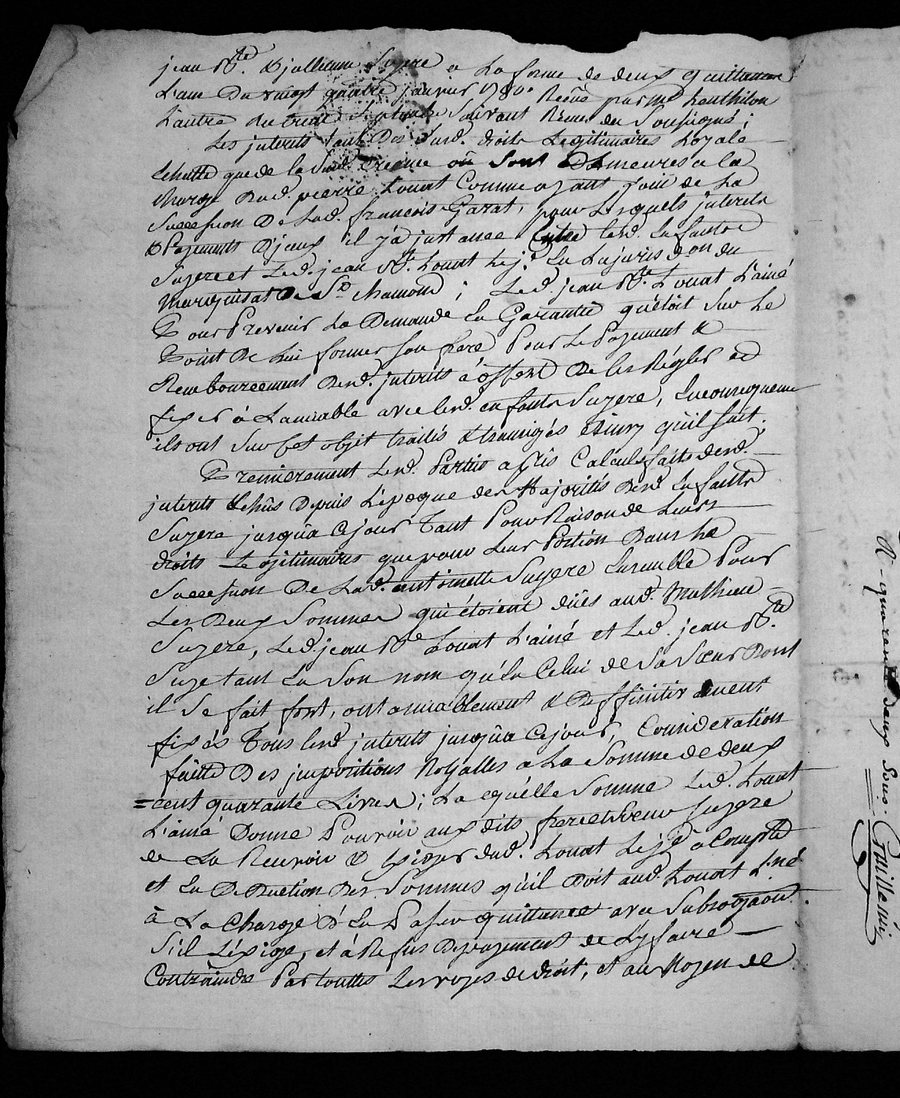 jean Bte. & jullienne Suzere a La forme de deux quittances
L'une Du vingt quatre janvier 1780. Reçue par me. Louthilon
L'autre du treize Septembre Suivant Reçue du Soussigné;
Les interits tant Des Surd. droits Legitimaires Loyale
Echutte que de la Sud. creüe où Sont Demeurés a la
Charge Dud. pierre Louat Comme ayant joüi de La
Succession De Lad. françois Garat, pour Lesquels interits
& Payements D'jeux il y'a justance Entre Lesd. Enfants
Suzere et Led. jean Bte. Louat Le je. En La jurisd.on du
Marquisat De St. chamond; Led. jean Bte. Louat L'ainé
Pour Prevenir La Demande En Garantie qu'étoit Sur Le
Point De Lui former Son frere Pour Le Payement &
Remboursement Desd. interits à offert De les Régler et
fixer à L'amiable avec Lesd. enfants Suzere, En consequence
ils ont Sur Cet objet traités & transigés Ainsy qu'il Suit.
Premierement Lesd. Parties après Calculs faits desd.
interits Echûs Depuis L'epoque des Majorités Desd. Enfants
Suzere jusqu'a Ce jour Tant Pour Raison de Leurs
droits Legitimaires que pour Leur Portion Dans La
Succession De Lad. antoinette Suzere Ensemble Pour
Les Deux Sommes qui étoient dües aud. Mathieu
Suzere, Led. jean Bte. Louat L'ainé et Led. jean Bte.
Suze tant En Son nom qu'en Celui de Sa Sœur Dont
il Se fait fort, ont amiablement & Deffinitivement
fixés Tous lesd. interits jusqu'a Ce jour, Consideration
faitte Des impositions Royalles a La Somme de deux
=cent quarante Livres; La qu'elle Somme Led. Louat
L'ainé Donne Pouvoir aux dits frere et Sœur Suzere
de La Recevoir & Exiger dud. Louat Le je. a Compte
et En Deduction Des Sommes qu'il Doit aud. Louat L'né
à La Charge d'En Passer quittance avec Subrogaon.
S'il L'éxige, et à Refus De payement de L'y faire
Contraindre Par touttes Les voyes de droit, et au Moyen de
R- quarente deux Sous.